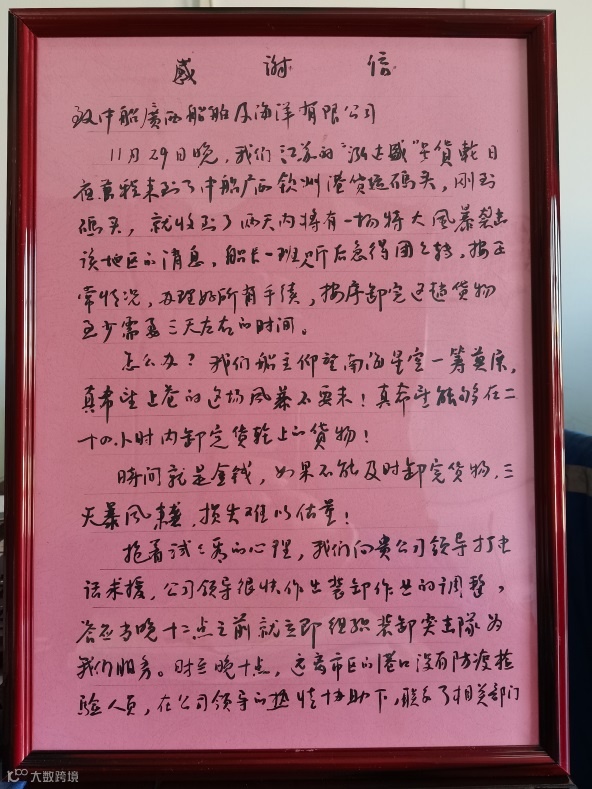 感谢信
致中船廣西船舶及海洋有限公司
11月29日晚，我们江苏的"泓达盛"号貨轮日
夜兼程来到了中船广西钦洲港貨运碼头，刚到
碼头，就收到了两天内将有一场特大風暴袭击
该地区的消息，船长一班人听后急得团々转，按正
常情况，办理好所有手续，按序卸完这趟货物
至少需要三天左右的时间。
怎么办？我们船主仰望南海星空一筹莫展，
真希望上苍的这场風暴不要来！真希望能够在二
十四小时内卸完货轮上的貨物！
時间就是金钱，如果不能及时卸完货物，三
天暴風来袭，损失难以估量！
抱着试々看的心理，我们向贵公司领导打电
话求援，公司领导很快作出装卸作业的调整，
答应当晚十二点之前就立即组织装卸突击隊为
我们服务。时至晚十点，远离市区的港口没有防疫检
验人员，在公司领导的热情协助下，联系了相关部门
大数跨境